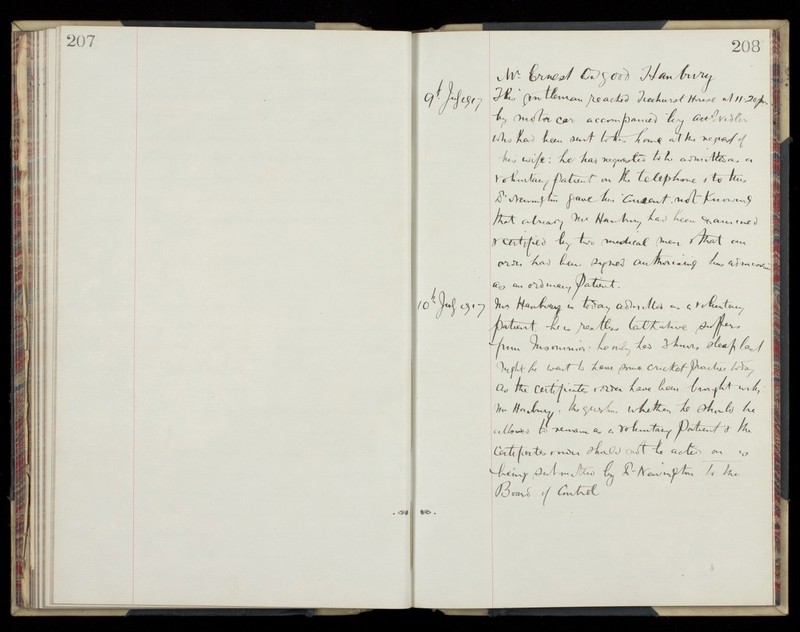 207
208
Mr. Ernest Osgood Hanbury
9th July 1917
This gentleman reached Ticehurst House at 11-20 pm
by motor car accompanied by
who had been sent to his home at the request of
his wife: he has requested to be admitted as a
voluntary patient on the telephone & to this
Dr Newington gave his consent not knowing
that already Mr Hanbury had been examined
& certified by two medical men & that an
order had been signed authorising his admission
as an ordinary Patient.
10th July 1917
Mr Hanbury is today admitted as a voluntary
patient he is restless talkative suffers
from Insomnia: he only has 3 hours sleep last
night he want to have some cricket practice today
As the certificates & order have been brought with
Mr Hanbury, the question whether he should be
allowed to remain as a voluntary Patient & the
certificates & order should not be acted on is
being submitted by Dr Newington to the
Board of Control